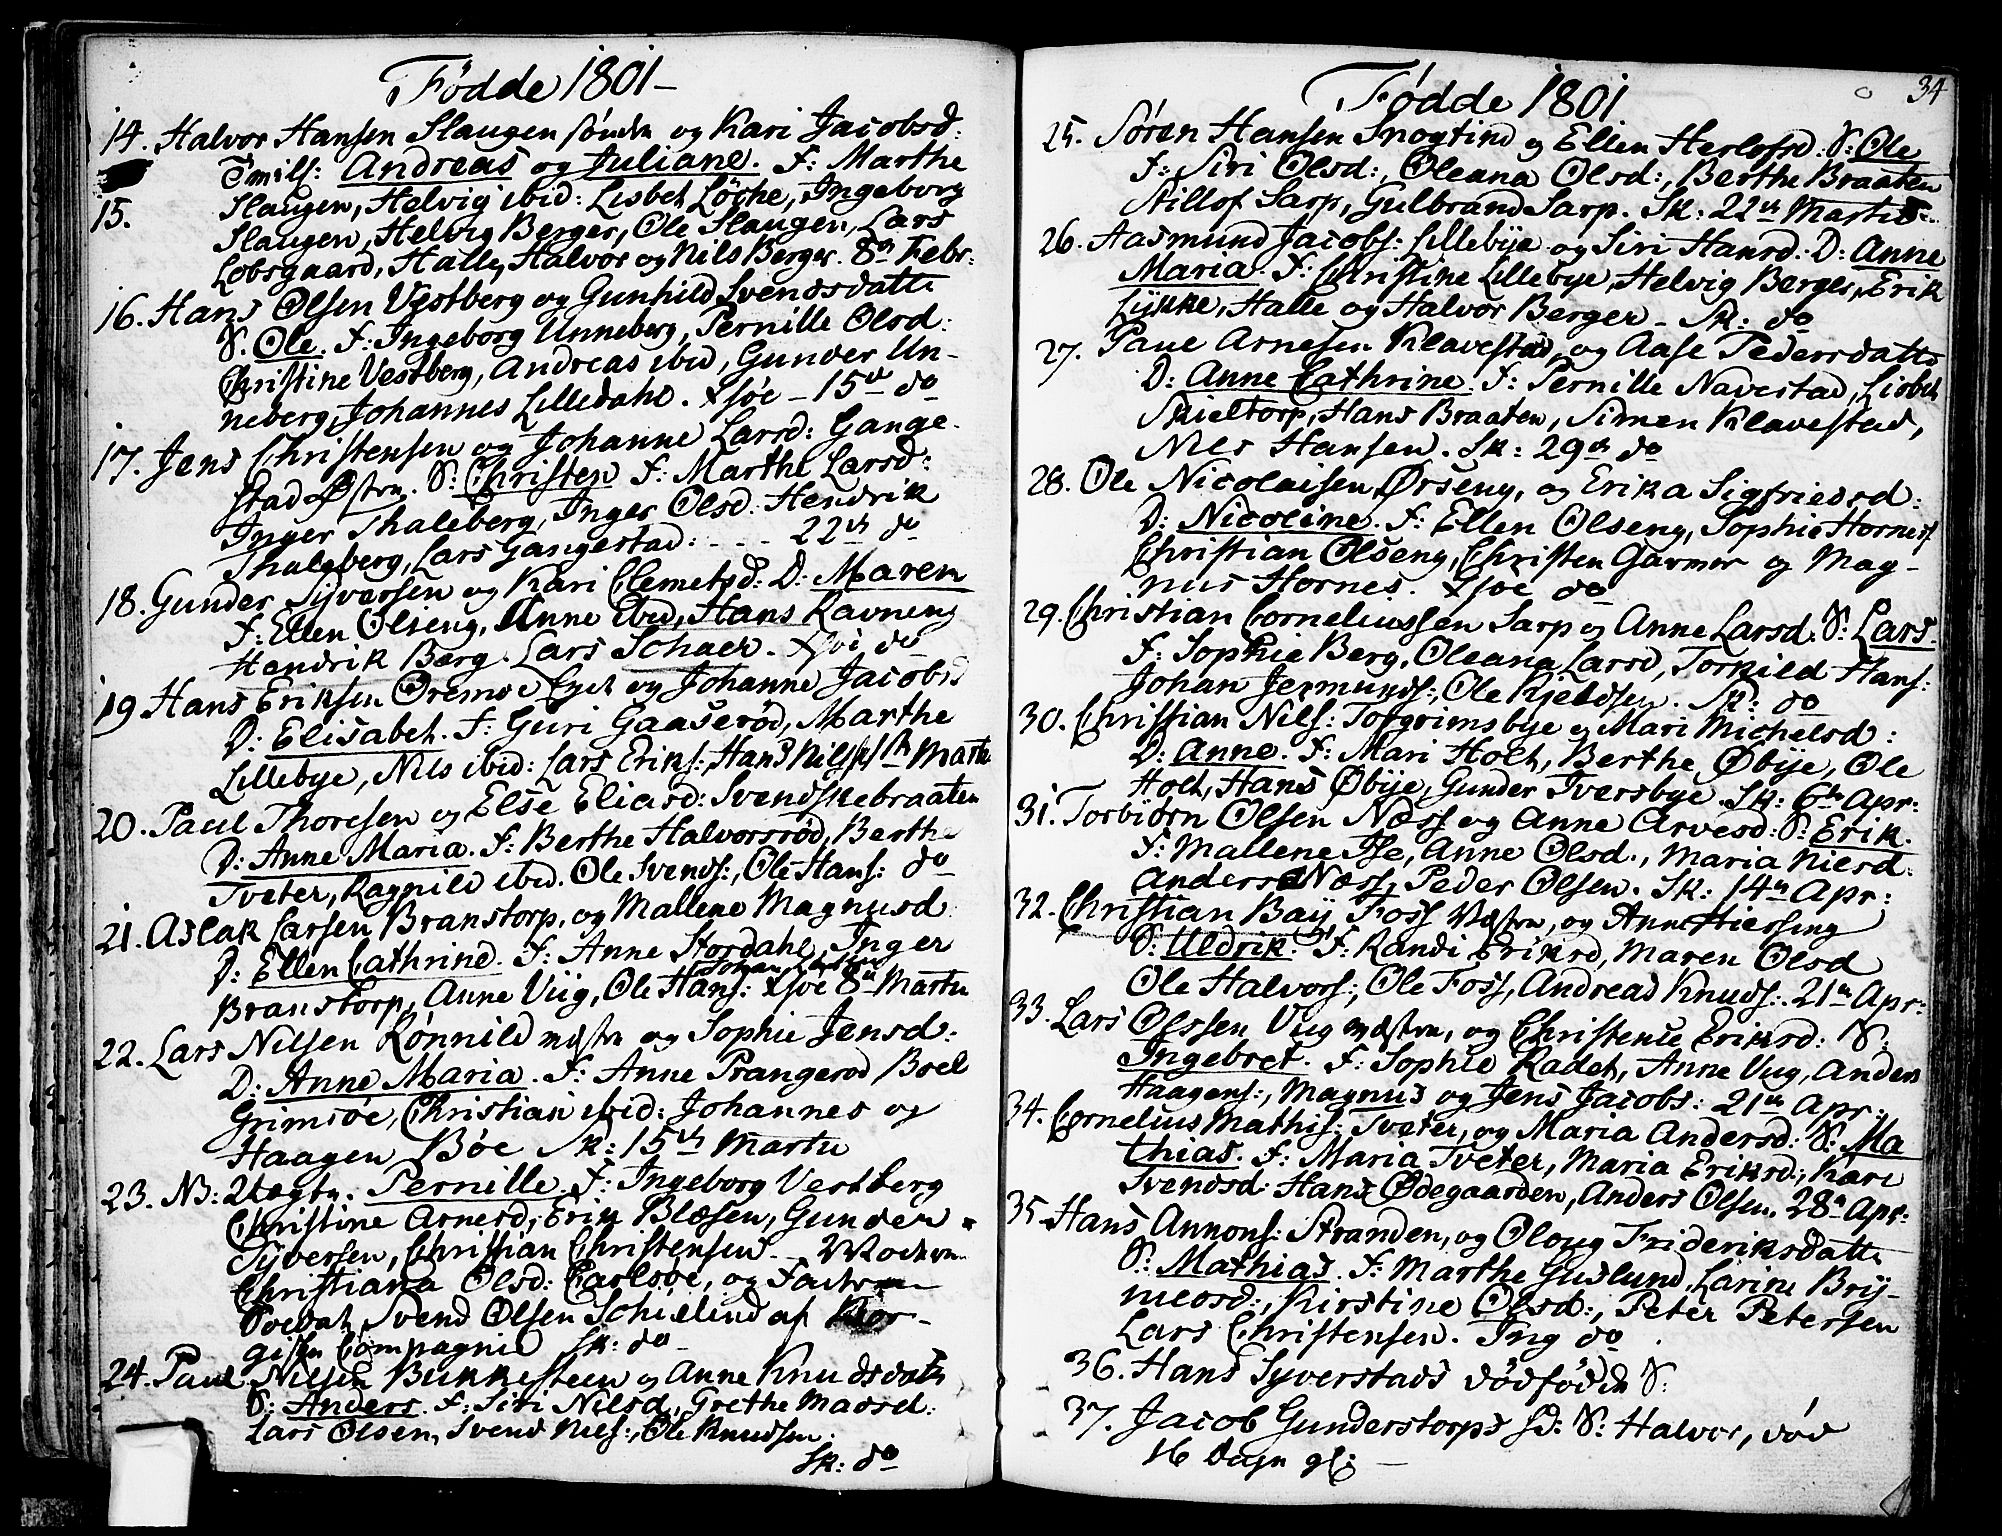 Fødde 1801 –
14. Halvor Hansen Slaugen søndre og Kari Jacobsd:
Tvill: Andreas og Juliane. F: Marthe
15. Slaugen, Helvig ibid: Lisbet Løche, Ingeborg
Slaugen, Helvig Berger, Ole Slaugen, Lars
Lobsgaard, Halle, Halvor og Nils Berger. 8de Febr:
16. Hans Olsen Vestberg og Gunhild Svendsdatter
S. Ole. F: Ingeborg Unneberg, Pernille Olsd:
Christine Vestberg, Andreas ibid, Gunder Un-
neberg, Johannes Lilledahl. Tjøe – 15de do
17. Jens Christensen og Johanne Larsd: Gange-
stad Østre. S: Christen F: Marthe Larsd:
Inger Thaleberg, Inger Olsd: Hendrik
Thaleberg, Lars Gangestad: - - - 22de do
18. Gunder Syversen og Kari Clemetsd: D: Maren
F: Ellen Olseng, Anne ibid, Hans Ravneng
Hendrik Berg. Lars Schaer. do
19 Hans Eriksen Øremoe Eget og Johanne Jacobsd
D: Elisabet. F: Guri Gaaserød, Marthe
Lillebye, Nils ibid: Lars Eriks:, Hans Nils: 1ste Martii
20. Paul Thoresen og Else Eliasd: Svendskebraaten
D: Anne Maria. F: Berthe Halvorsrød, Berthe
Tveter, Ragnild ibid. Ole Svends:, Ole Hans: do
21. Aslak Larsen Branstorp, og Mallene Magnusd
D: Ellen Cathrine. F: Anne Stordahl, Inger
Branstorp, Anne Viig, Ole Hans: 8de Martii
22. Lars Nilsen Rønnild mestre og Sophie Jensd:
D: Anne Maria. F: Anne Prangerød Boel
Grimsøe, Christian ibid: Johannes og
Haagen Bøe Sk: 15de Martii
23. NB: Uægte. Pernille. F: Ingeborg Vestberg
Christine Arnesd, Erik Blæsen, Gunder
Syversen, Christian Christensen – Moderen
Christiana Olsd: Carlsøe, og Faderen
Soldat Svend Olsen Schielind af Bor-
giske Compagnie Sk: do
24. Paul Nilsen Bukkesteen og Anne Knudsdatter
S: Anders. F: Siri Nilsd, Grethe Madsd:
Lars Olsen, Svend Nils:, Ole Knudsen.
Sk: do
34
Fødde 1801
25. Søren Hansen Snogtind og Ellen Herlofsd: S: Ole
F: Siri Olsd:, Oleana Olsd:, Berthe Braaten
Nillof Sarp, Gulbrand Sarp. Sk: 22de Martii
26. Aasmund Jacobs: Lillebye og Siri Hansd: D: Anne
Maria. F: Christine Lillebye, Helvig Berger, Erik
Lykke, Halle og Halvor Berger – Sk: do
27. Paul Arnesen Klavestad, og Aase Pedersdatter
D: Anne Cathrine. F: Pernille Navestad, Lisbet
Skieltorp, Hans Braaten, Simen Klavestad,
Nils Hansen. Sk: 29de do
28. Ole Nicolaisen Ørseng, og Erika Sigfriedsd:
D: Nicoline. F: Ellen Olseng, Sophie Hornes
Christian Olseng, Christen Garmer og Mag-
nus Hornes. Tjøe do
29. Christian Corneliussen Sarp og Anne Larsd: S: Lars.
F: Sophie Berg, Oleana Larsd, Torkild Hans:
Johan Jermunds:, Ole Kjeldsen. Sk: do
30. Christian Nils: Torgrimsbye og Mari Michelsd:
D: Anne. F: Mari Holt, Berthe Øbye, Ole
Holt, Hans Øbye, Gunder Iversbye. Sk: 6te Apr:
31. Torbiørn Olsen Næss og Anne Arvesd: S: Erik.
F: Mallene Ise, Anne Olsd., Maria Nilsd:
Anders Næss, Peder Olsen. Sk: 14de Apr:
32. Christian Bay Foss Vestre, og Anne Hiersing
S: Uldrik. F: Randi Eriksd, Maren Olsd
Ole Halvors:, Ole Foss, Andreas Knuds:. 21de Apr:
33. Lars Olssen Viig mestre, og Christense Eriksd: S:
Ingebret. F: Sophie Radet, Anne Viig, Anders
Haagens:, Magnus og Jens Jacobs: 21de Apr:
34. Cornelius Mathis: Tveter, og Maria Andersd: S: Ma
thias. F: Maria Tveter, Maria Eriksd:, Kari
Svendsd: Hans Ødegaarden, Anders Olsen. 28de Apr:
35. Hans Annons: Stranden, og Oloug Frideriksdatter
S: Mathias. F: Marthe Guslund, Larine Bry-
nieosd:, Kirstine Olsd:, Peter Petersen
Lars Christensen. Ing do
36. Hans Syverstads dødfødde S:
37. Jacob Gunderstorps S: Halvor, død
16 Dage gl: –